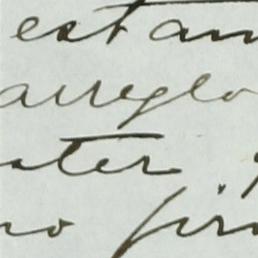 estan
arreglo
ater
no fir